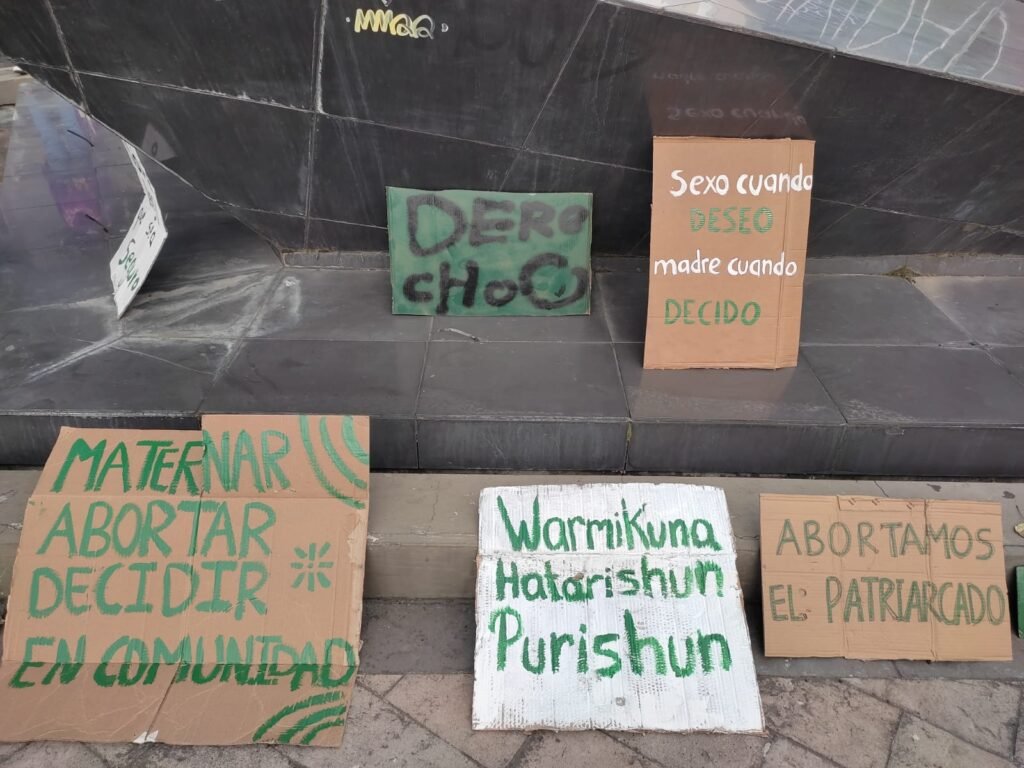 MMQQ
DERO
CHO
Sexo cuando
DESEO
madre cuando
DECIDO
MATERNAR
ABORTAR
DECIDIR
EN COMUNIDAD
WarmiKuna
Hatarishun
Purishun
ABORTAMOS
EL PATRIARCADO